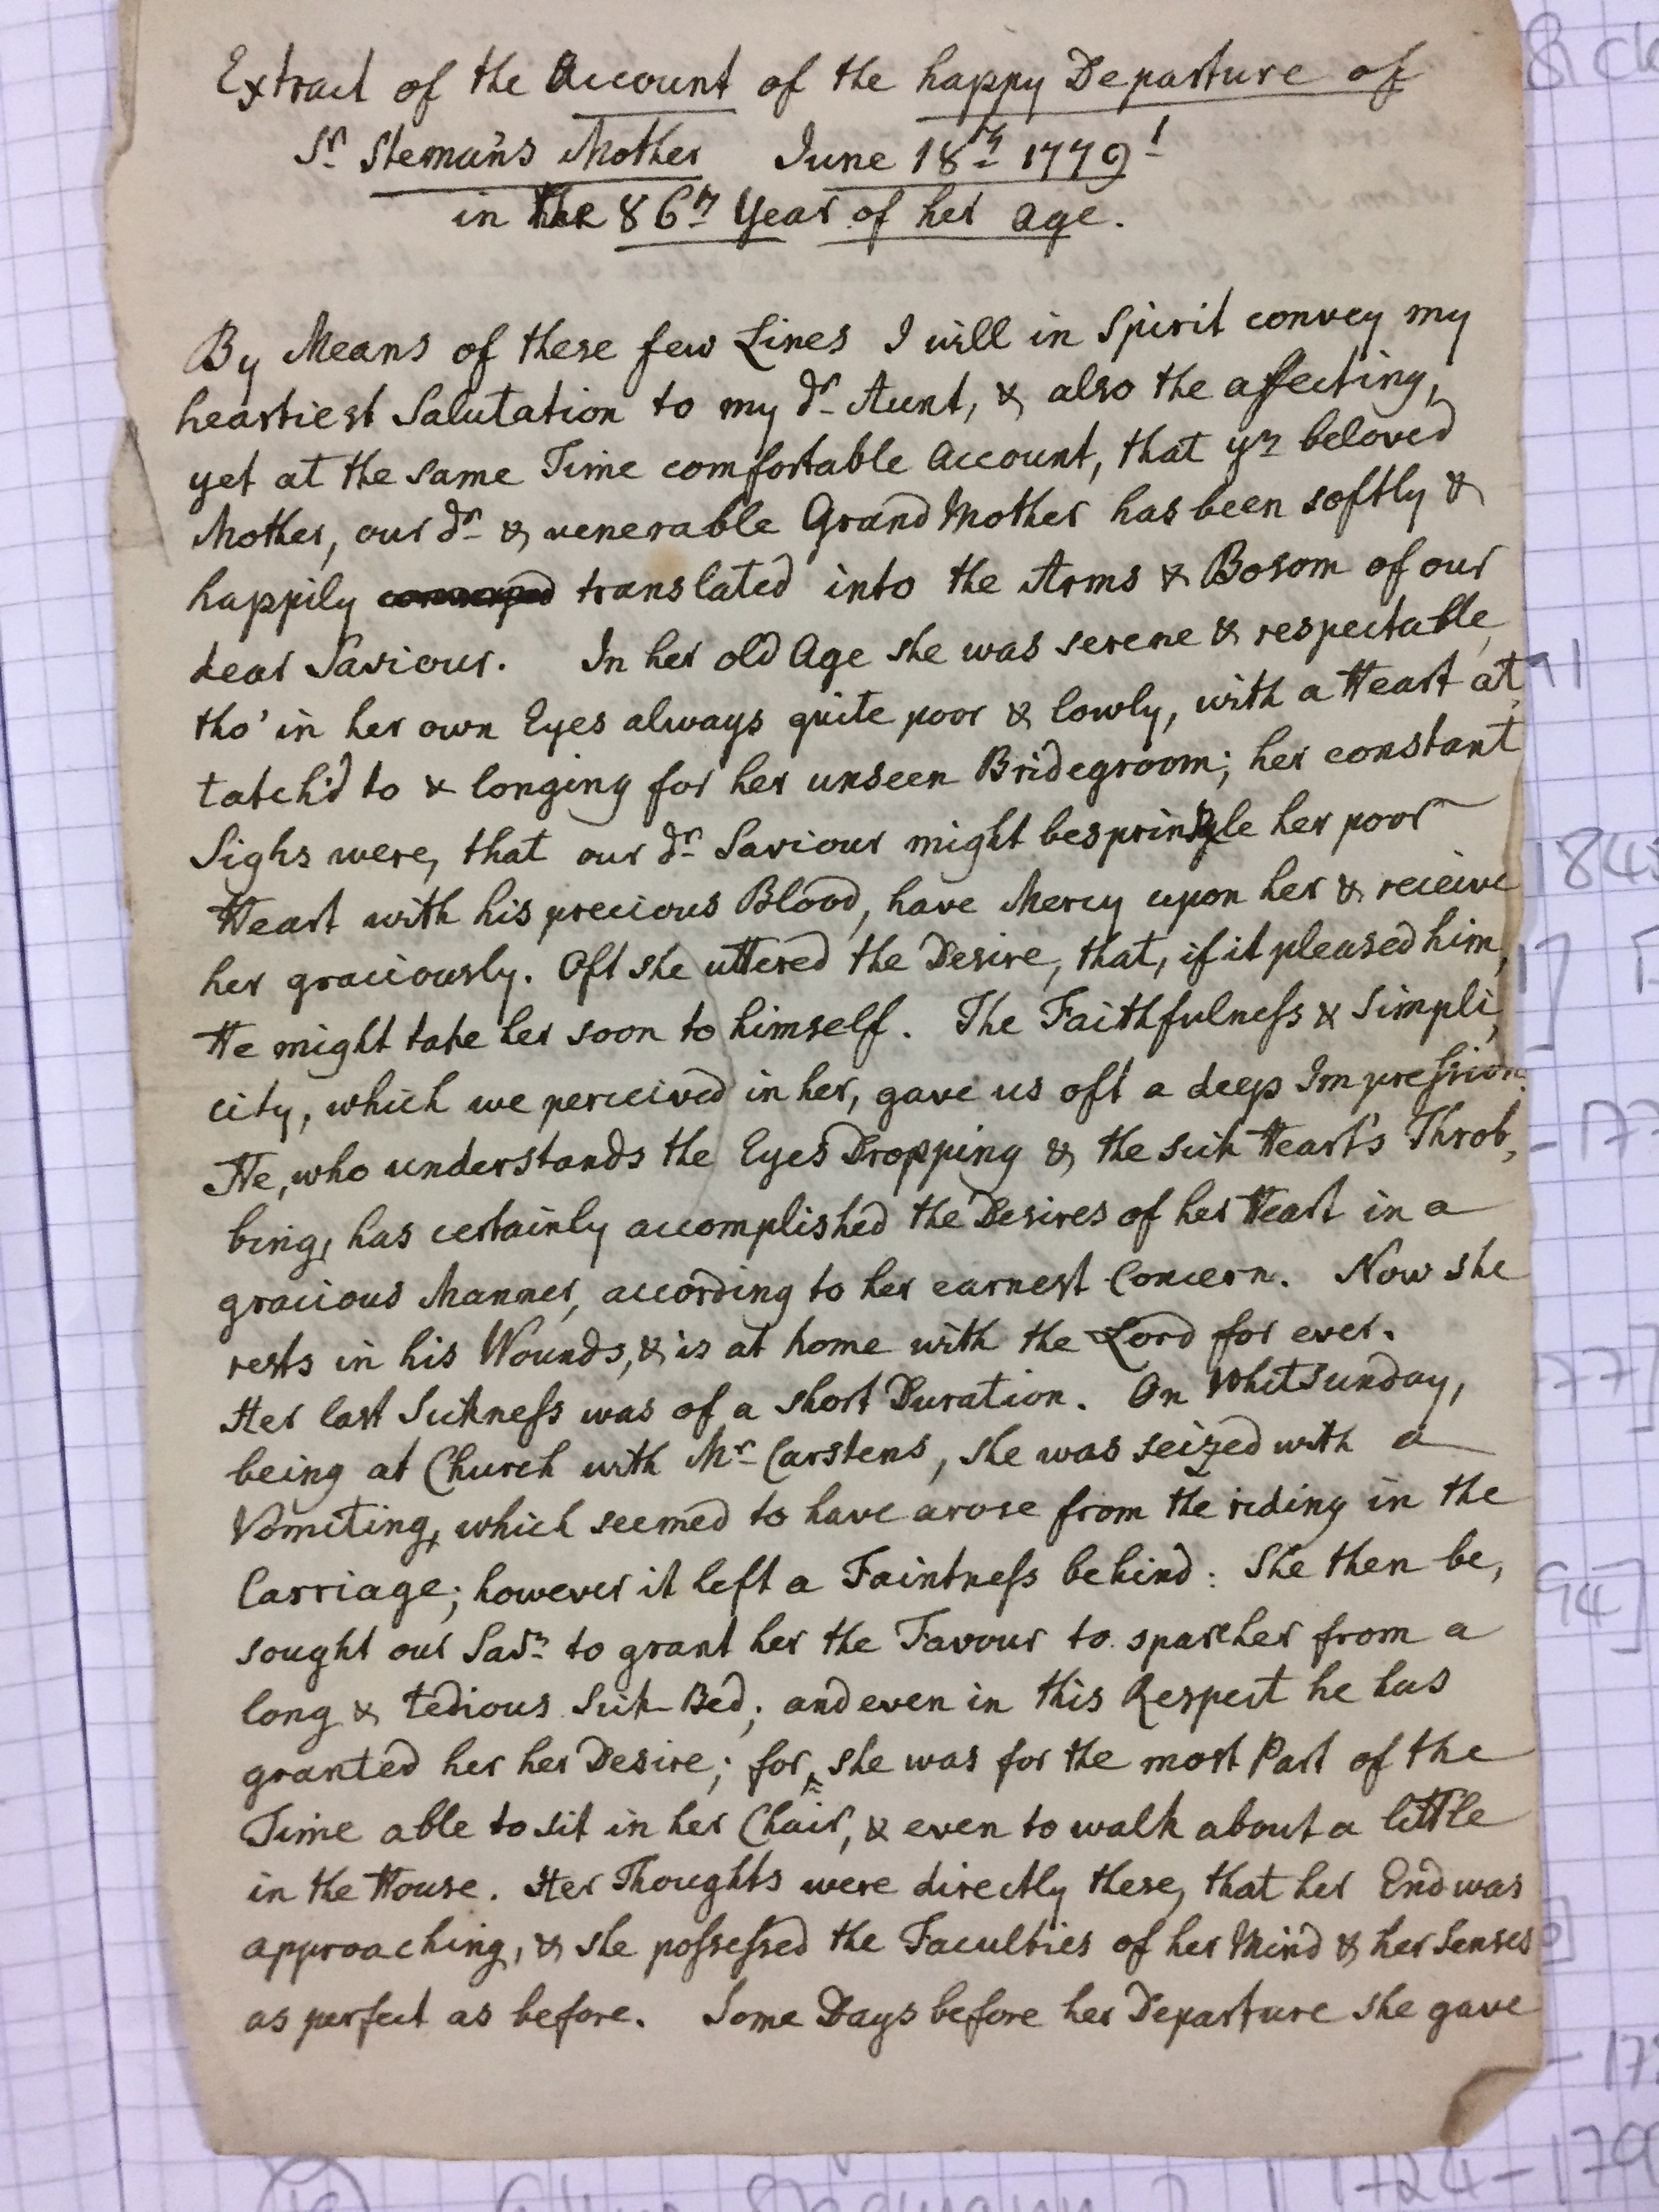 Extract of the Account of the happy Departure of
Sr. Steman's Mother June 18th 1779
in the 86th Year of her age.
By Means of these few Lines I will in Spirit convey my
heartiest Salutation to my dr. Aunt, & also the affecting,
yet at the same Time comfortable Account, that yr. beloved
Mother, our dr. & venerable Grand Mother has been softly &
happily translated into the Arms & Bosom of our
dear Saviour. In her old Age she was serene & respectable,
tho' in her own Eyes always quite poor & lowly, with a Heart at,
tatch'd to & longing for her unseen Bridegroom; her constant
Sighs were, that our dr. Saviour might besprinkle her poor
Heart with his precious Blood, have Mercy upon her & receive
her graciously. Oft she uttered the Desire, that, if it pleased him,
He might take her soon to himself. The Faithfulneſs & Simpli,
city, which we perceived in her, gave us oft a deep Impreſsion.
He, who understands the Eyes Dropping & the sick Heart's Throb,
bing, has certainly accomplished the Desires of her Heart in a
gracious Manner, according to her earnest Concern. Now she
rests in his Wounds, & is at home with the Lord for ever.
Her last Sickneſs was of a short Duration. On Whitsunday,
being at Church with Mr. Carstens, she was seized with a
Vomiting, which seemed to have arose from the riding in the
Carriage; however it left a Faintneſs behind: She then be,
sought our Savr. to grant her the Favour to spare her from a
long & tedious Sick-Bed; and even in this Respect he has
granted her her Desire; for, she was for the most Part of the
Time able to sit in her Chair, & even to walk about a little
in the House. Her Thoughts were directly these, that her End was
approaching, & she poſseſsed the Faculties of her Mind & her Senses
as perfect as before. Some Days before her Departure she gave
91
1845
17
-177
177]
94]
- 172
1724-179